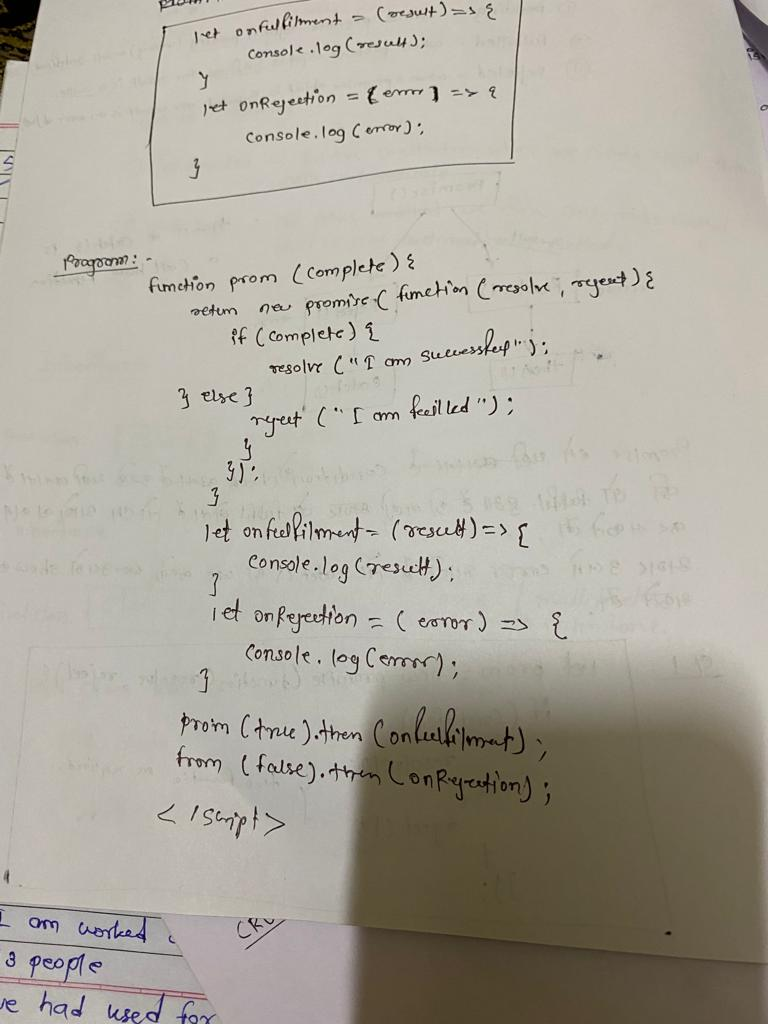 let onfulfilment = (result) => {
console.log(result);
}
let onRejection = [error] => {
console.log(error);
}
Program:-
function prom (complete) {
return new promise (function (resolve, reject) {
if (complete) {
resolve ("I am successful");
} else }
reject (" I am feilled ");
}
});
}
let onfulfilment = (result) => {
console.log(result);
}
let onRejection = (error) => {
console.log(error);
}
prom (true).then (onfulfilment);
from (false).then (onRejection);
</script>
I am worked
3 people
had used for